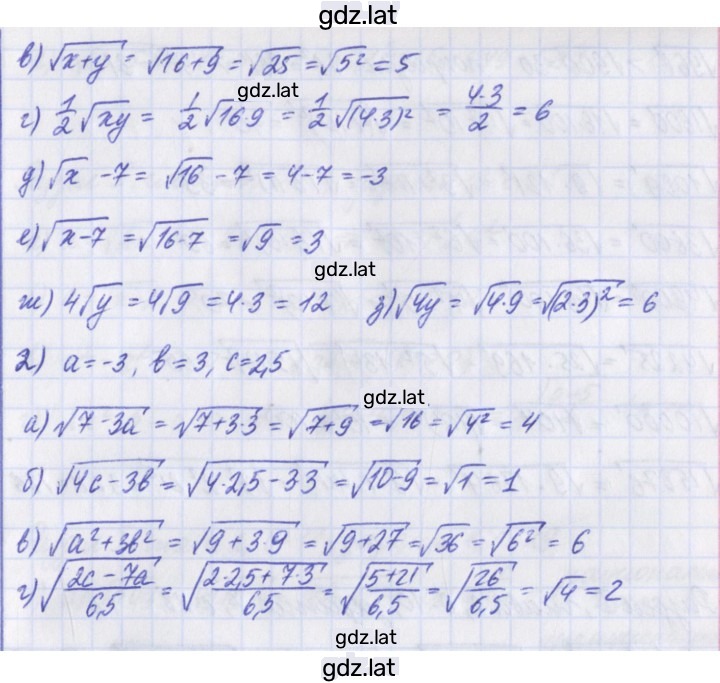 gdz.lat
в) √(x+y) = √(16+9) = √25 = √5² = 5
gdz.lat
г) 1/2 √(xy) = 1/2 √(16·9) = 1/2 √(4·3)² = (4·3)/2 = 6
д) √x - 7 = √16 - 7 = 4-7 = -3
е) √(x-7) = √(16-7) = √9 = 3
gdz.lat
ж) 4√y = 4√9 = 4·3 = 12 з) √(4y) = √(4·9) = √(2·3)² = 6
2) a = -3, b = 3, c = 2,5
gdz.lat
а) √(7-3a) = √(7+3·3) = √(7+9) = √16 = √4² = 4
б) √(4c-3b) = √(4·2,5-3·3) = √(10-9) = √1 = 1
в) √(a²+3b²) = √(9+3·9) = √(9+27) = √36 = √6² = 6
г) √((2c-7a)/6,5) = √((2·2,5+7·3)/6,5) = √((5+21)/6,5) = √(26/6,5) = √4 = 2
gdz.lat
gdz.lat